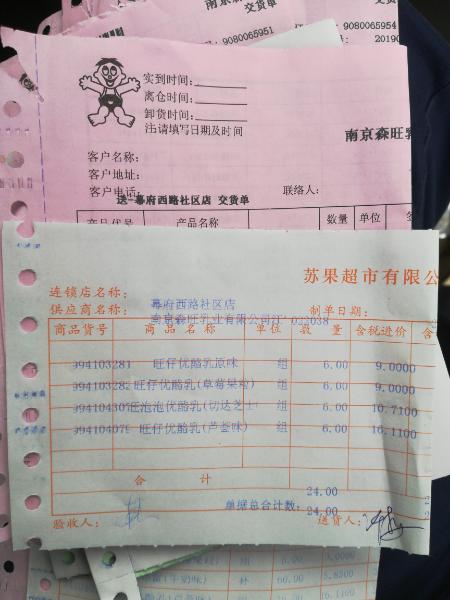 南京
交货单
9080065951
9080065954
20190
实到时间:
离仓时间:
卸货时间:
注请填写日期及时间
南京森旺乳
客户名称:
客户地址:
客户电话:
联络人:
送-幕府西路社区店 交货单
产品名称 数量 单位
苏果超市有限公
连锁店名称: 幕府西路社区店
供应商名称: 南京森旺乳业有限公司江 022038 制单日期:
商品货号 商品名称 单位 数量 含税进价 含
994103281 旺仔优酪乳原味 组 6.00 9.0000
99410328 旺仔优酪乳(草莓果粒) 组 6.00 9.0000
99410430 旺泡泡优酪乳(切达芝士 组 6.00 10.7100
99410407 旺仔优酪乳(芦荟味) 组 6.00 16.1100
合计 24.00
单据总合计数: 24.00
验收人: 送货人:
60.00 5.8500